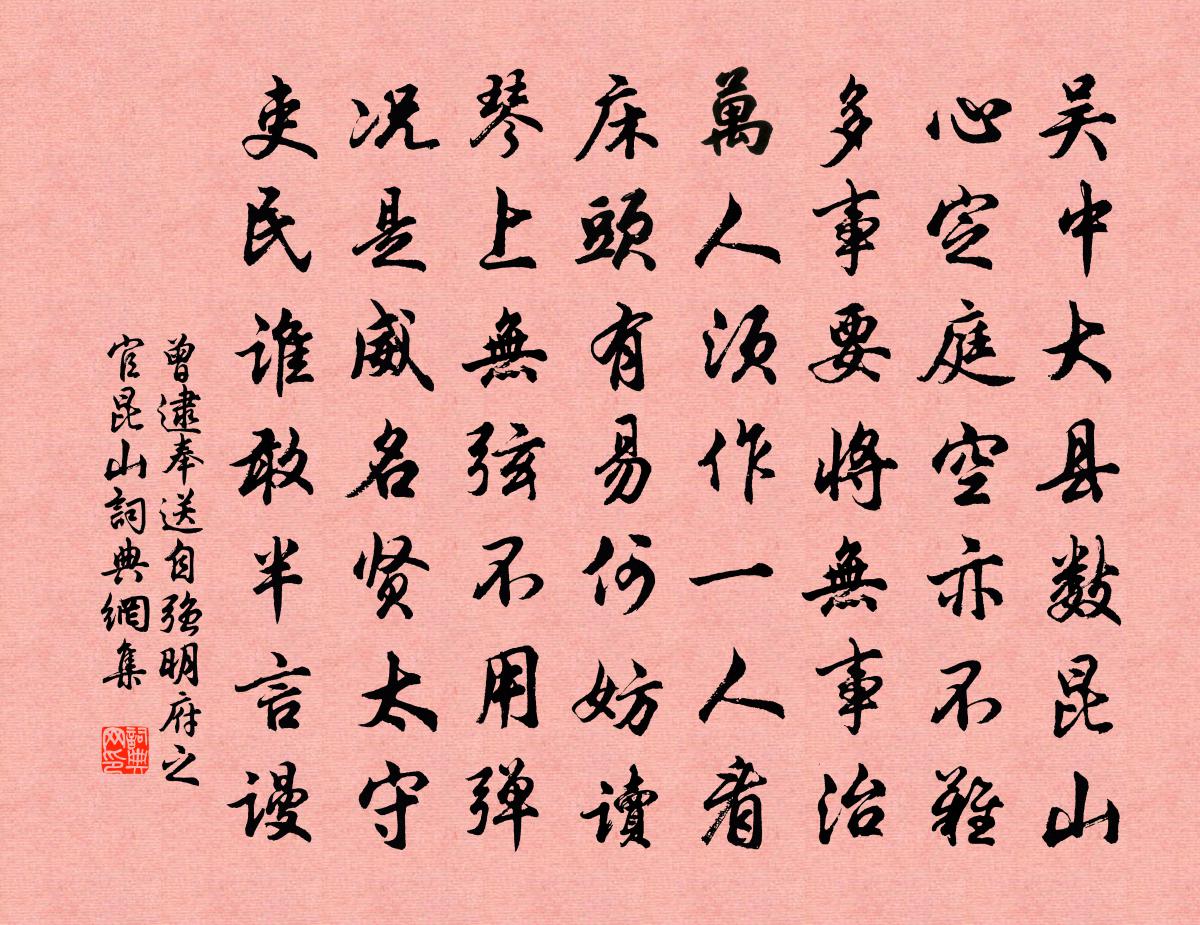 吴中大县数昆山
心定庭空亦不难
多事要将無事治
萬人须作一人看
床頭有易何妨讀
琴上無弦不用弹
况是威名贤太守
吏民谁敢半言谩
曾逮奉送自強明府之
官昆山詞典網集
詞典网印